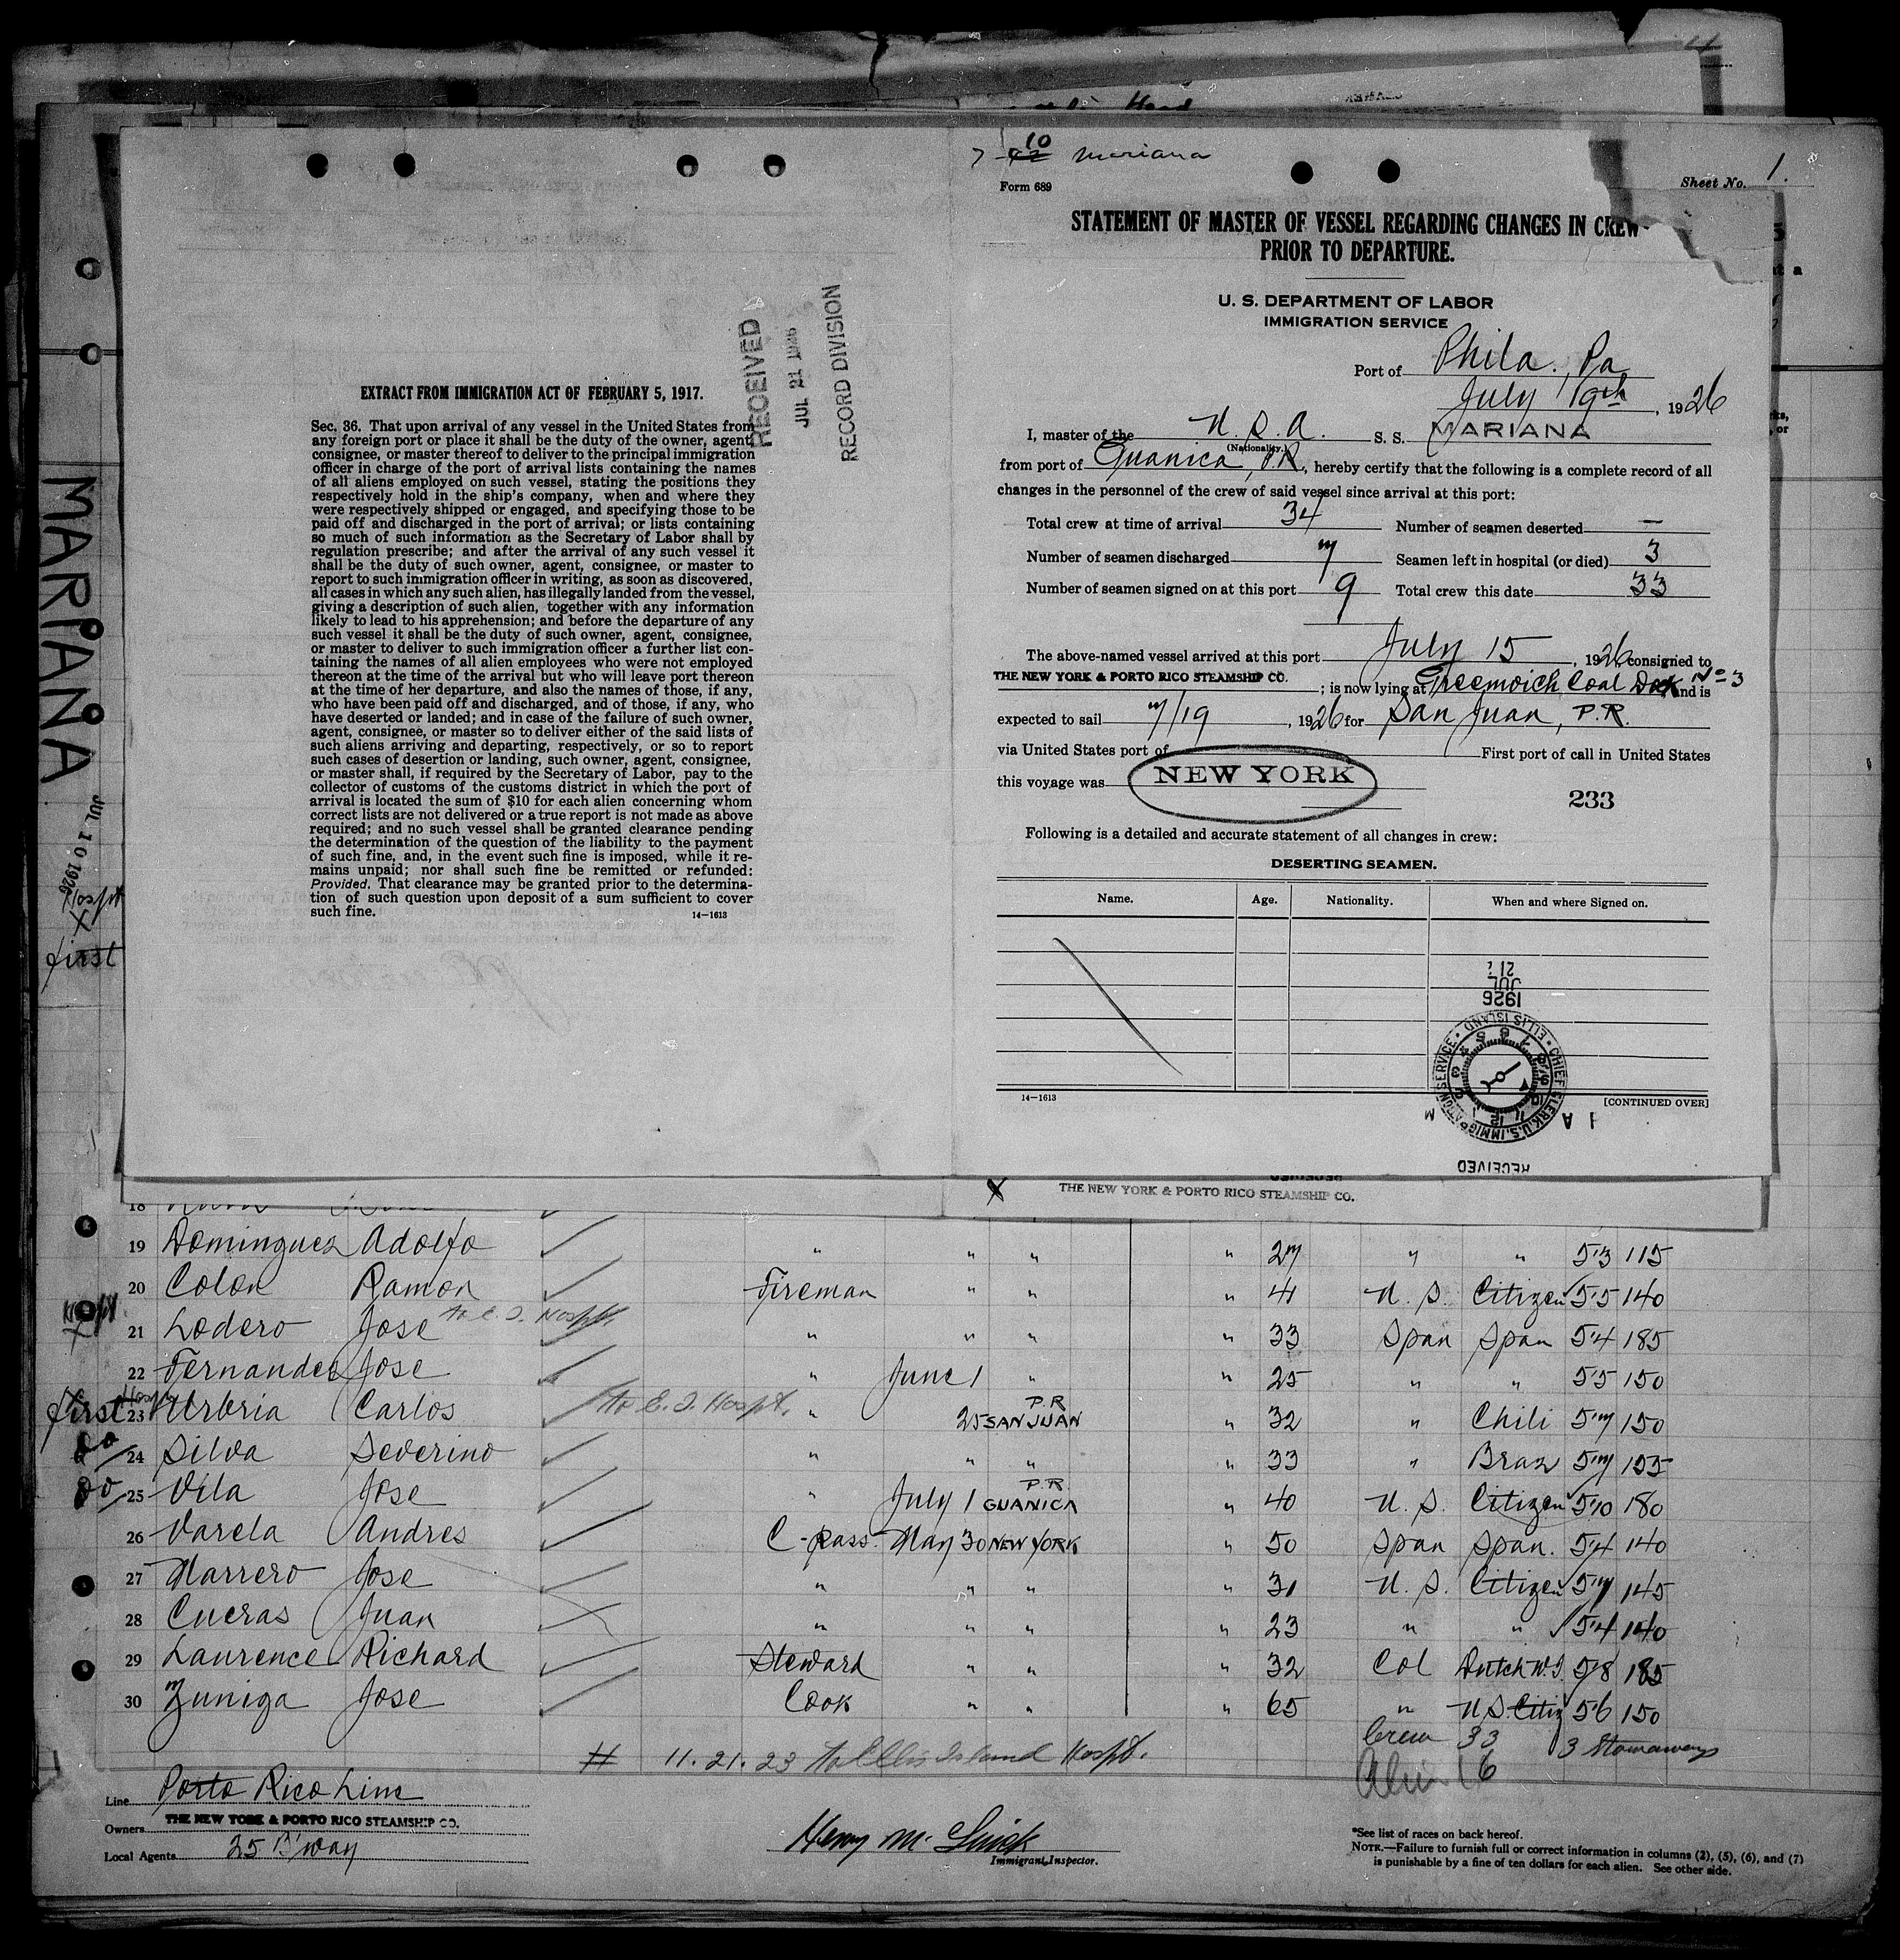 Head
7-10 Mariana
Form 689
Sheet No. 1.
STATEMENT OF MASTER OF VESSEL REGARDING CHANGES IN CREW
PRIOR TO DEPARTURE.
U. S. DEPARTMENT OF LABOR
IMMIGRATION SERVICE
Port of Phila., Pa
July 19th, 1926
I, master of the U. S. A. S. S. MARIANA
(Nationality.)
from port of Guanica, P.R., hereby certify that the following is a complete record of all
changes in the personnel of the crew of said vessel since arrival at this port:
Total crew at time of arrival 34 Number of seamen deserted —
Number of seamen discharged 7 Seamen left in hospital (or died) 3
Number of seamen signed on at this port 9 Total crew this date 33
The above-named vessel arrived at this port July 15, 1926 consigned to
THE NEW YORK & PORTO RICO STEAMSHIP CO.; is now lying at Greenwich Coal Dock No 3 and is
expected to sail 7/19, 1926 for San Juan, P.R.
via United States port of First port of call in United States
this voyage was NEW YORK
233
Following is a detailed and accurate statement of all changes in crew:
DESERTING SEAMEN.
Name. Age. Nationality. When and where Signed on.
JUL 21 1926
CHIEF CLERK, U.S. IMMIGRATION SERVICE • ELLIS ISLAND •
RECEIVED
14—1613
[CONTINUED OVER]
RECEIVED
JUL 21 1926
RECORD DIVISION
EXTRACT FROM IMMIGRATION ACT OF FEBRUARY 5, 1917.
Sec. 36. That upon arrival of any vessel in the United States from
any foreign port or place it shall be the duty of the owner, agent,
consignee, or master thereof to deliver to the principal immigration
officer in charge of the port of arrival lists containing the names
of all aliens employed on such vessel, stating the positions they
respectively hold in the ship's company, when and where they
were respectively shipped or engaged, and specifying those to be
paid off and discharged in the port of arrival; or lists containing
so much of such information as the Secretary of Labor shall by
regulation prescribe; and after the arrival of any such vessel it
shall be the duty of such owner, agent, consignee, or master to
report to such immigration officer in writing, as soon as discovered,
all cases in which any such alien, has illegally landed from the vessel,
giving a description of such alien, together with any information
likely to lead to his apprehension; and before the departure of any
such vessel it shall be the duty of such owner, agent, consignee,
or master to deliver to such immigration officer a further list con-
taining the names of all alien employees who were not employed
thereon at the time of the arrival but who will leave port thereon
at the time of her departure, and also the names of those, if any,
who have been paid off and discharged, and of those, if any, who
have deserted or landed; and in case of the failure of such owner,
agent, consignee, or master so to deliver either of the said lists of
such aliens arriving and departing, respectively, or so to report
such cases of desertion or landing, such owner, agent, consignee,
or master shall, if required by the Secretary of Labor, pay to the
collector of customs of the customs district in which the port of
arrival is located the sum of $10 for each alien concerning whom
correct lists are not delivered or a true report is not made as above
required; and no such vessel shall be granted clearance pending
the determination of the question of the liability to the payment
of such fine, and, in the event such fine is imposed, while it re-
mains unpaid; nor shall such fine be remitted or refunded:
Provided, That clearance may be granted prior to the determina-
tion of such question upon deposit of a sum sufficient to cover
such fine.
14—1613
MARIANA
JUL 10 1926
Hospt
X
first
X THE NEW YORK & PORTO RICO STEAMSHIP CO.
18
19 Dominguez Adolfo " " " " 27 " " 5'3 115
20 Colon Ramon Fireman " " " 41 U. S. Citizen 5'5 140
Hospt X 21 Lodero Jose To E. I. Hospt. " " " " 33 Span Span 5'4 185
22 Fernandez Jose " June 1 " " 25 " " 5'5 150
first 23 Urbria Carlos To E. I. Hospt. " 25 SAN JUAN P.R " 32 " Chili 5'7 150
do 24 Silva Severino " " " " 33 " Braz 5'7 155
do 25 Vila Jose " July 1 GUANICA P.R " 40 U. S. Citizen 5'10 180
26 Varela Andres C-pass. May 30 NEW YORK " 50 Span Span. 5'4 140
27 Marrero Jose " " " " 31 U. S. Citizen 5'7 145
28 Cueras Juan " " " " 23 " " 5'4 140
29 Laurence Richard Steward " " " 32 Col Dutch W.I 5'8 185
30 Zuniga Jose Cook " " " 65 " U S. Citiz 5'6 150
Crew 33 3 Stowaways
# 11. 21. 23 To Ellis Island Hospt.
Line Porto Rico Line
Owners THE NEW YORK & PORTO RICO STEAMSHIP CO.
Local Agents 25 B'way
Henry M.
Immigrant Inspector.
*See list of races on back hereof.
NOTE.—Failure to furnish full or correct information in columns (2), (5), (6), and (7)
is punishable by a fine of ten dollars for each alien. See other side.